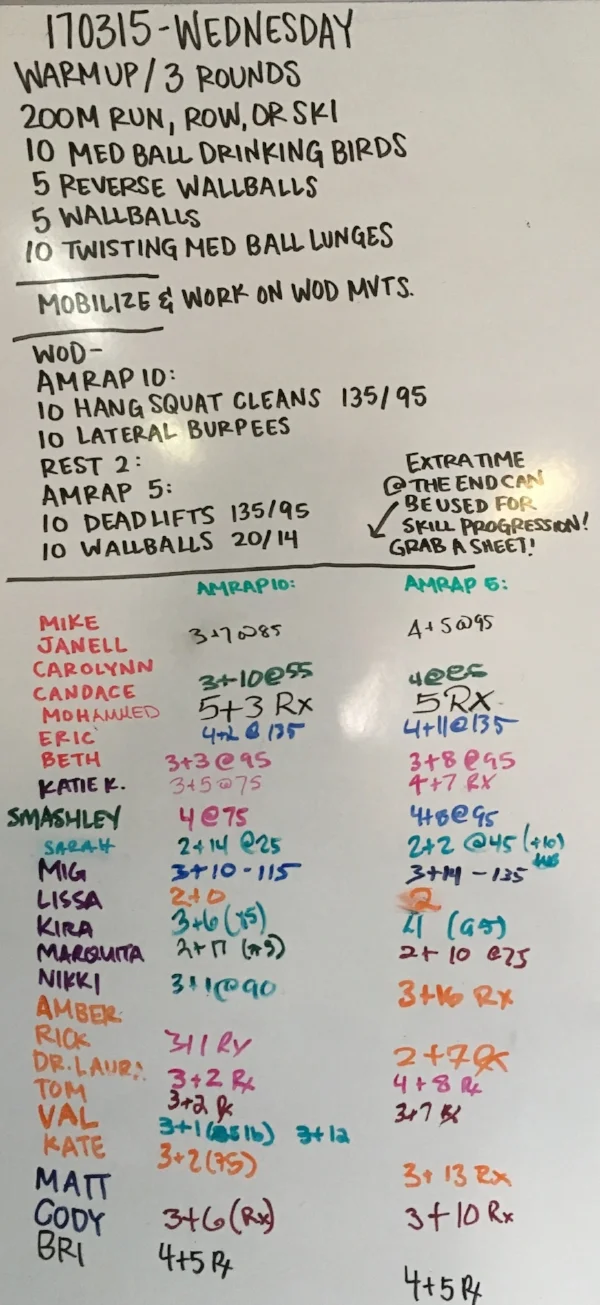 170315-WEDNESDAY
WARMUP/3 ROUNDS
200M RUN, ROW, OR SKI
10 MED BALL DRINKING BIRDS
5 REVERSE WALLBALLS
5 WALLBALLS
10 TWISTING MED BALL LUNGES
MOBILIZE & WORK ON WOD MVTS.
WOD-
AMRAP 10:
10 HANG SQUAT CLEANS 135/95
10 LATERAL BURPEES
REST 2:
AMRAP 5:
10 DEADLIFTS 135/95
10 WALLBALLS 20/14
EXTRA TIME
@ THE END CAN
BE USED FOR
SKILL PROGRESSION!
GRAB A SHEET!
AMRAP 10: AMRAP 5:
MIKE
JANELL 3+7@85 4+5@95
CAROLYNN
CANDACE 3+10@55
MOHAMMED 5+3 Rx 5 RX
ERIC 4+2 @ 135 4+11@135
BETH 3+3@95 3+8@95
KATIE K. 3+5@75 4+7 RX
SMASHLEY 4@75 4+8@95
SARAH 2+14 @25 2+2 @45 (+10)
MIG 3+10-115 3+14-135
LISSA 2+0 2
KIRA 3+6 (75) 4 (95)
MARQUITA 2+17 2+10 @75
NIKKI 3+1@90
AMBER 3+16 Rx
RICK 3+1 Rx
DR. LAURI 2+7 Rx
TOM 3+2 Rx 4+8 Rx
VAL 3+2 Rx 3+7 Rx
KATE 3+1 3+12
3+2 (75)
MATT 3+13 Rx
CODY 3+6 (Rx) 3+10 Rx
BRI 4+5 Rx 4+5 Rx